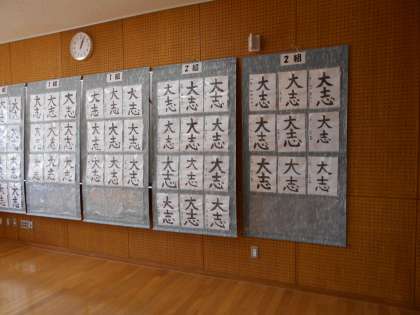 組
大志
大志
大志
大志
1組
大志 大志 大志
大志 大志 大志
大志 大志 大志
1組
大志 大志 大志
大志 大志 大志
大志 大志 大志
2組
大志 大志 大志
大志 大志 大志
大志 大志 大志
大志 大志 大志
2組
大志 大志 大志
大志 大志 大志
大志 大志 大志